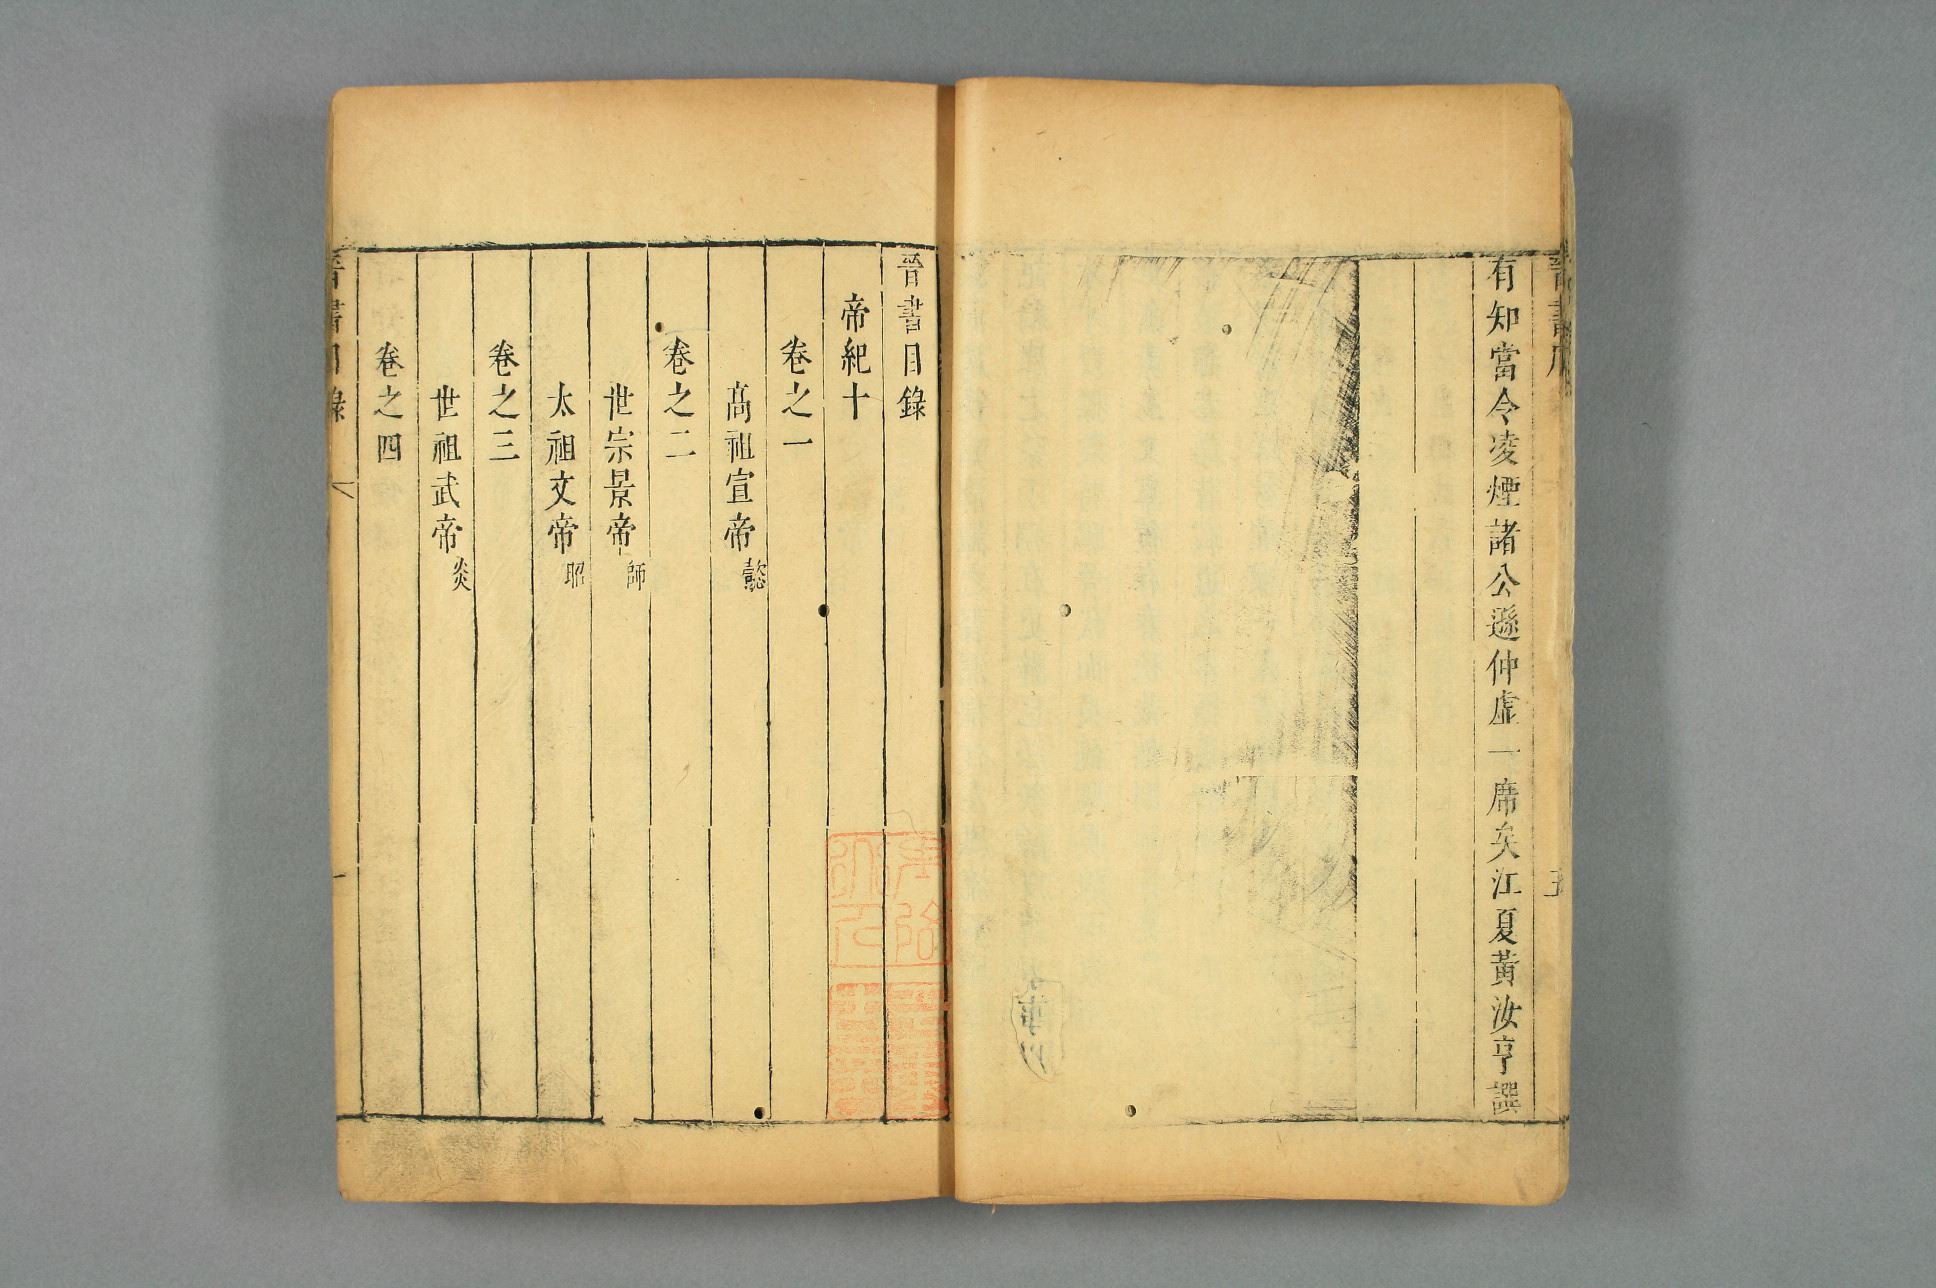 晉書序
五
有知當令凌煙諸公遜仲虛一席矣江夏黃汝亨譔
晉書目錄
帝紀十
卷之一
高祖宣帝懿
卷之二
世宗景帝師
太祖文帝昭
卷之三
世祖武帝炎
卷之四
晉書目錄
一